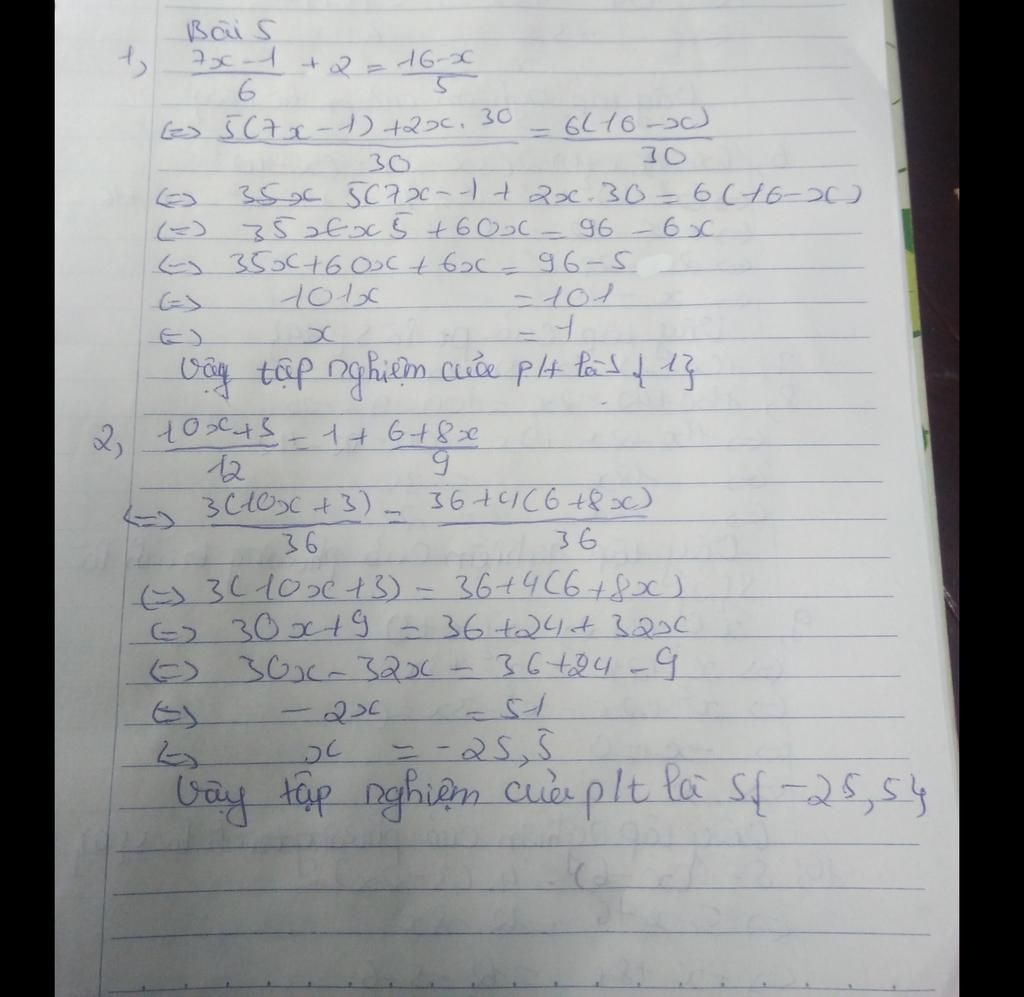 Bài 5
1, 7x-1/6 + 2 = 16-x/5
<=> 5(7x-1)+2x.30/30 = 6(16-x)/30
<=> 35x 5(7x-1+2x.30=6(16-x)
<=> 35x 5 +60x = 96 - 6x
<=> 35x+60x+6x = 96-5
<=> 101x = 101
<=> x = 1
Vậy tập nghiệm của p/t là S{1}
2, 10x+3/12 = 1 + 6+8x/9
<=> 3(10x+3)/36 = 36+4(6+8x)/36
<=> 3(10x+3) = 36+4(6+8x)
<=> 30x+9 = 36+24+32x
<=> 30x-32x = 36+24-9
<=> -2x = 51
<=> x = -25,5
Vậy tập nghiệm của p/t là S{-25,5}